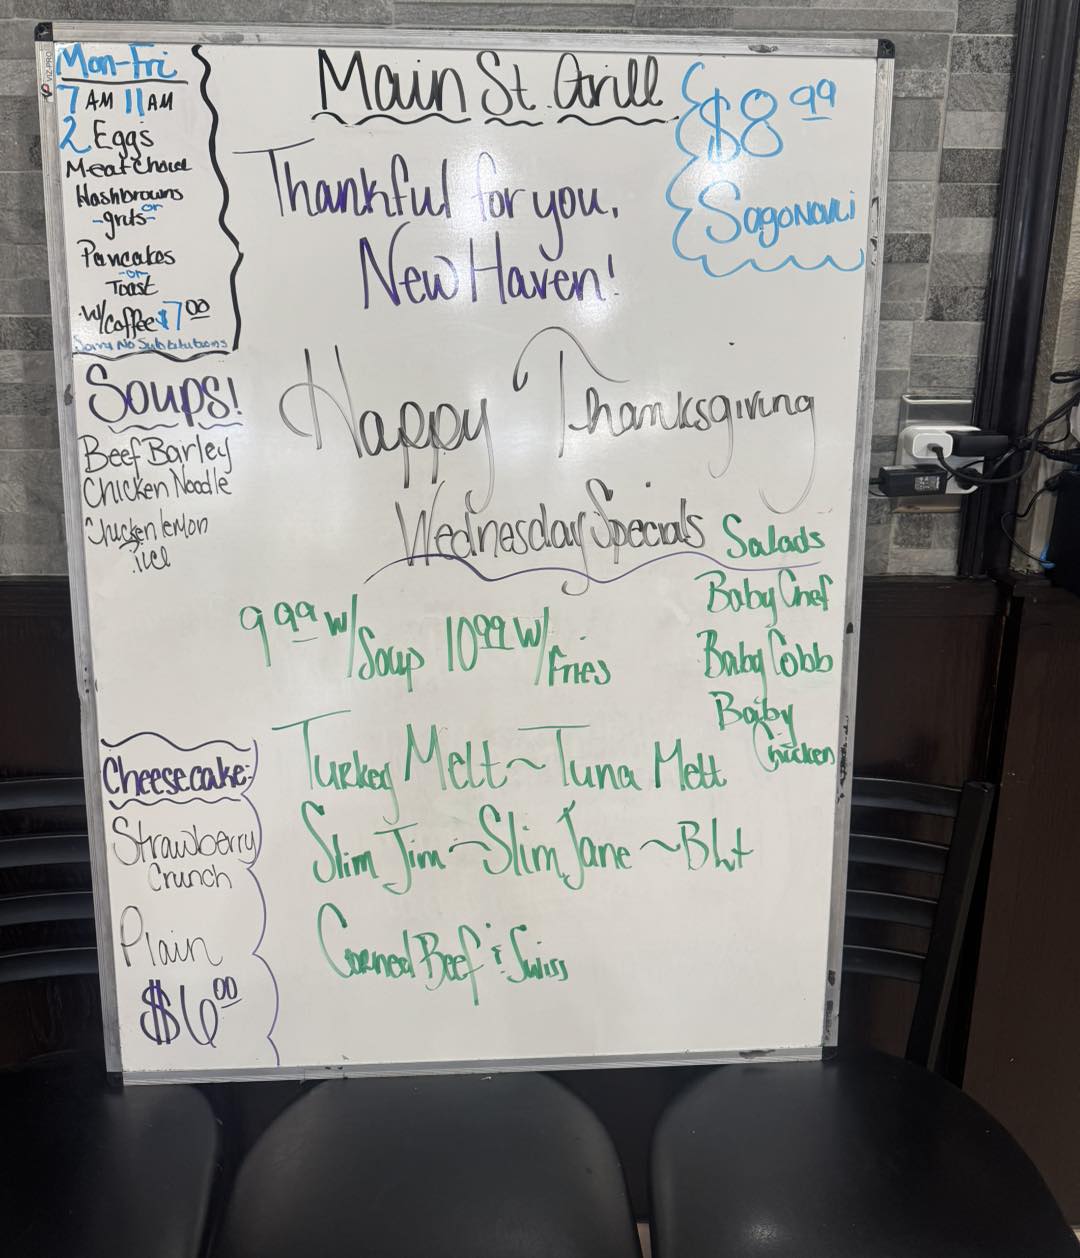 VIZ-PRO
Mon-Fri
7 AM 11 AM
2 Eggs
Meat Choice
Hashbrowns
or
-grits-
Pancakes
-or-
Toast
w/Coffee $7.00
Sorry No Substitutions
Main St. Grill
Thankful for you,
New Haven!
$8.99
Sagonaki
Happy Thanksgiving
Soups!
Beef Barley
Chicken Noodle
Chicken lemon
rice
Wednesday Specials
9.99 w/Soup 10.99 w/Fries
Salads
Baby Chef
Baby Cobb
Baby
Chicken
Turkey Melt ~ Tuna Melt
Slim Jim ~ Slim Jane ~ Blt
Corned Beef & Swiss
Cheesecake:
Strawberry
Crunch
Plain
$6.00